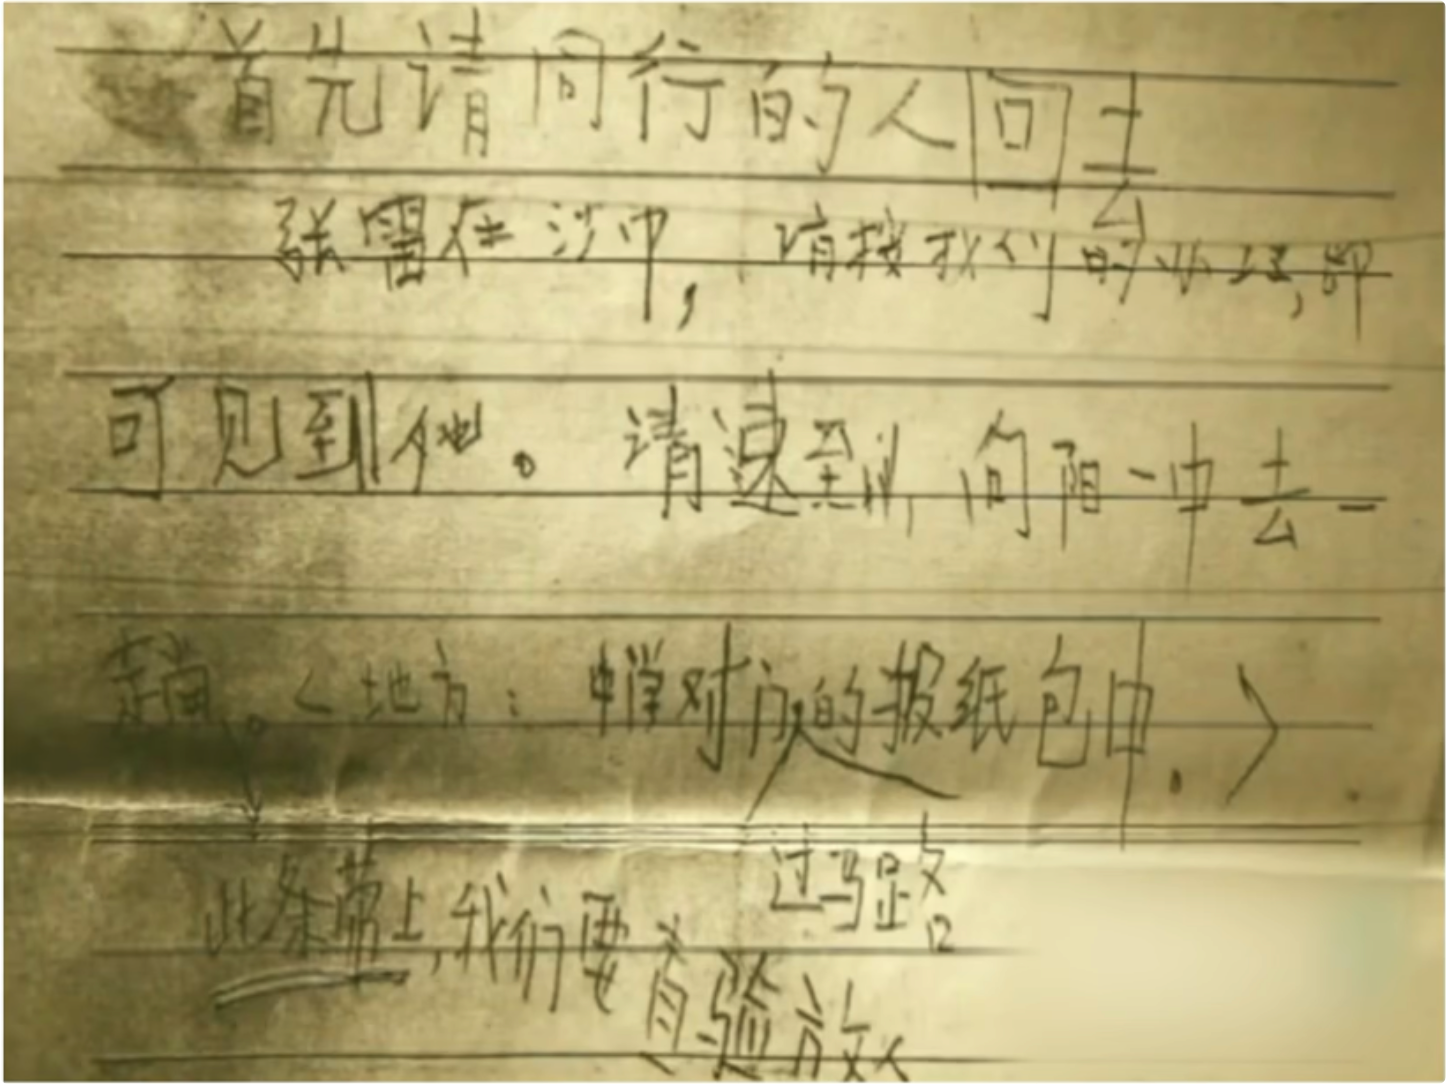 首先请同行的人回去
张雷在沙市,请按我们的办理,即
可见到他。请速到向阳一中去一
趟。<地方:中学对门的报纸包中.>
过马路
此条带上,我们要查验放人